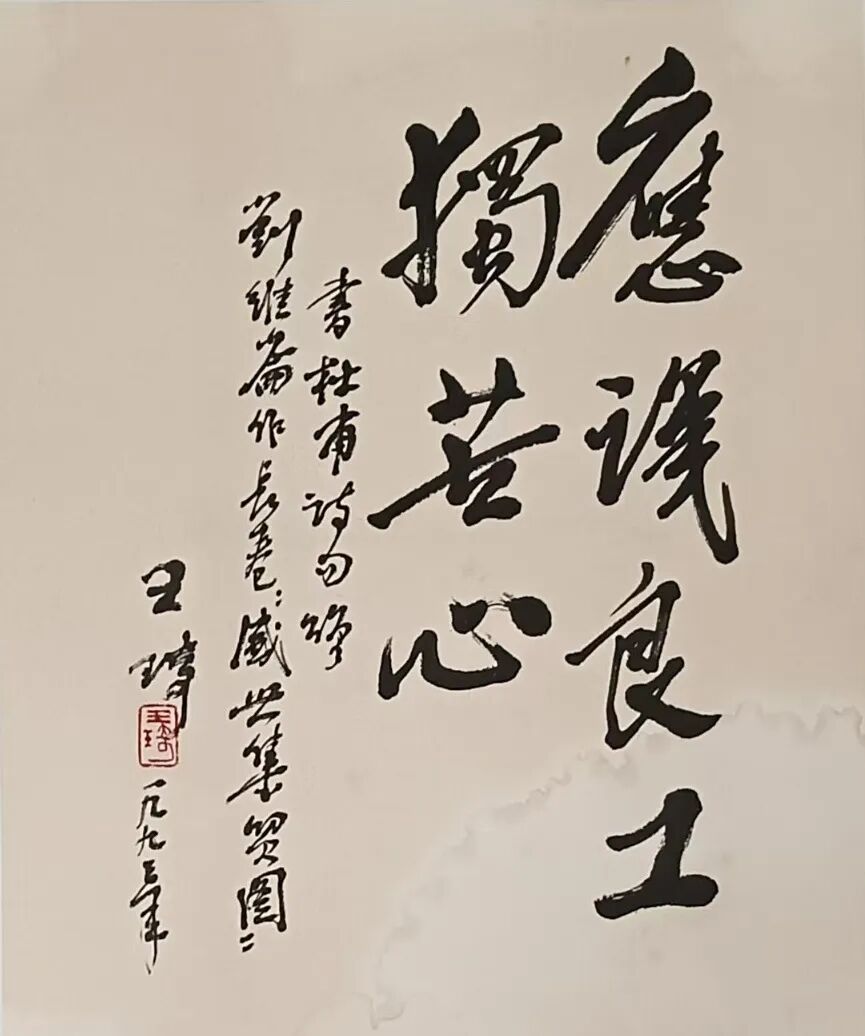 應識良工
獨苦心
書杜甫詩句贈
劉維崙作長卷："盛世集貿圖"
王琦
王琦
一九九三年